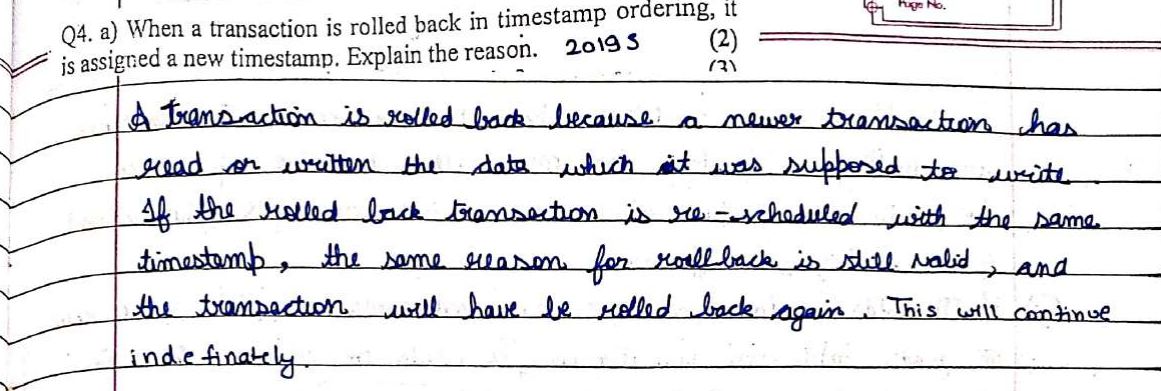 Page No.
Q4. a) When a transaction is rolled back in timestamp ordering, it
is assigned a new timestamp. Explain the reason. 2019 S (2)
(3)
A transaction is rolled back because a newer transaction has
read or written the data which it was supposed to write
If the rolled back transaction is re-scheduled with the same
timestamp, the same reason for rollback is still valid, and
the transaction will have be rolled back again. This will continue
indefinately.